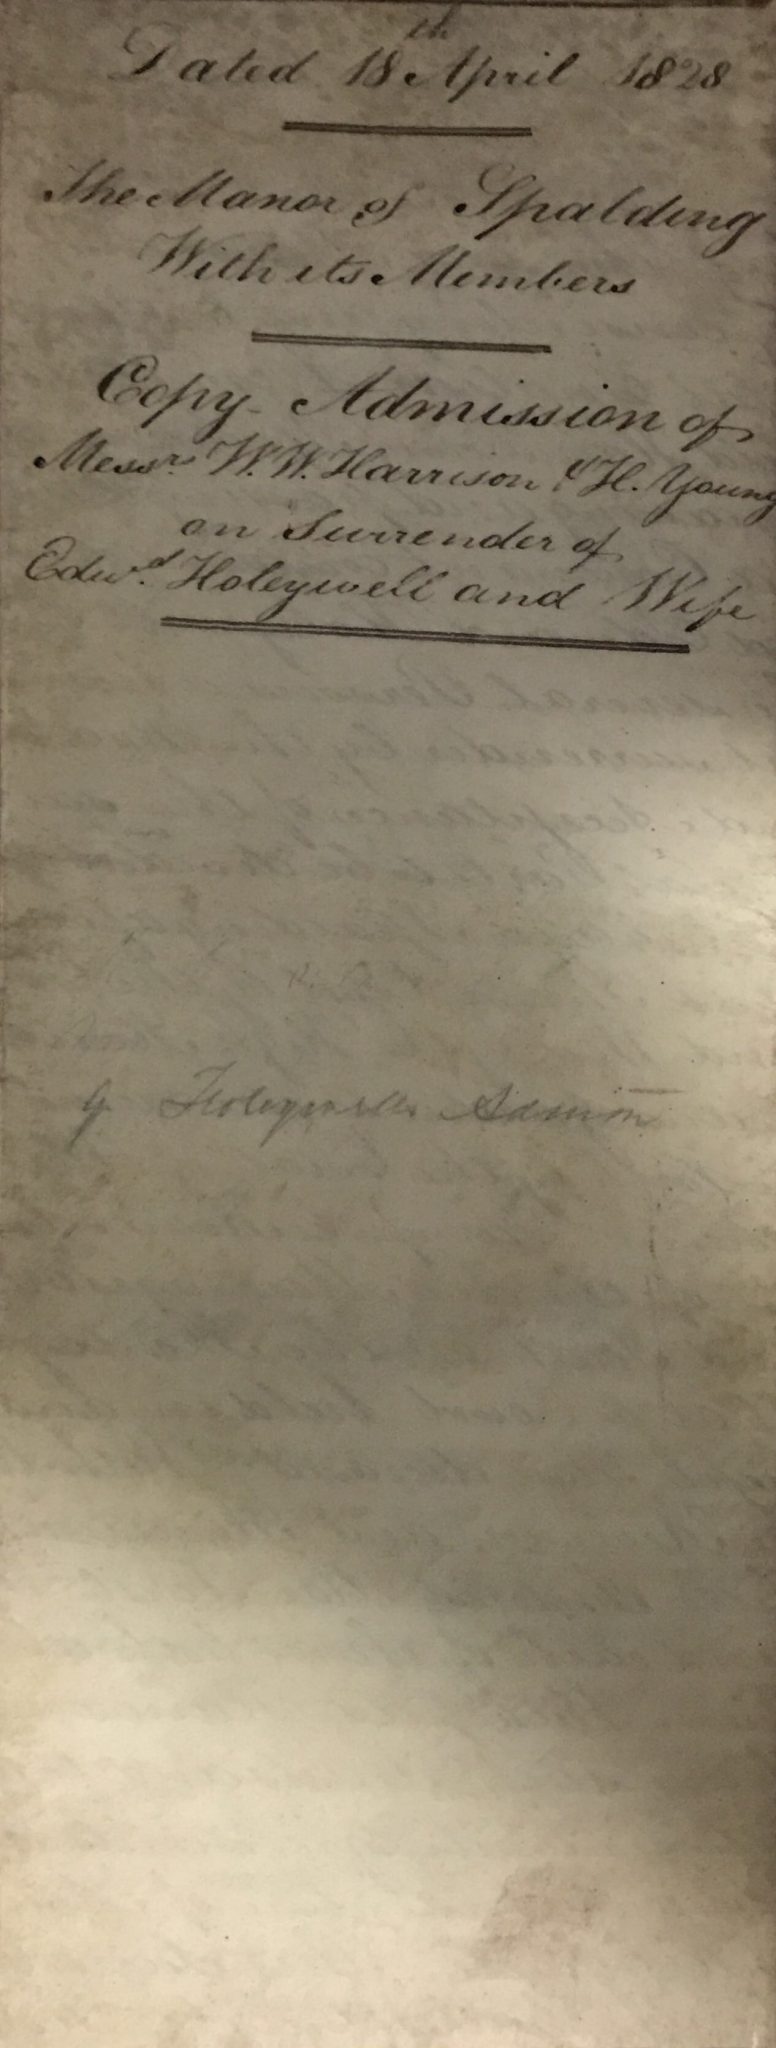 Dated 18th April 1828
The Manor of Spalding
With its Members
Copy Admission of
Messrs. W. W. Harrison & H. Young
on Surrender of
Edwd. Holeywell and Wife
Holeywells Admon